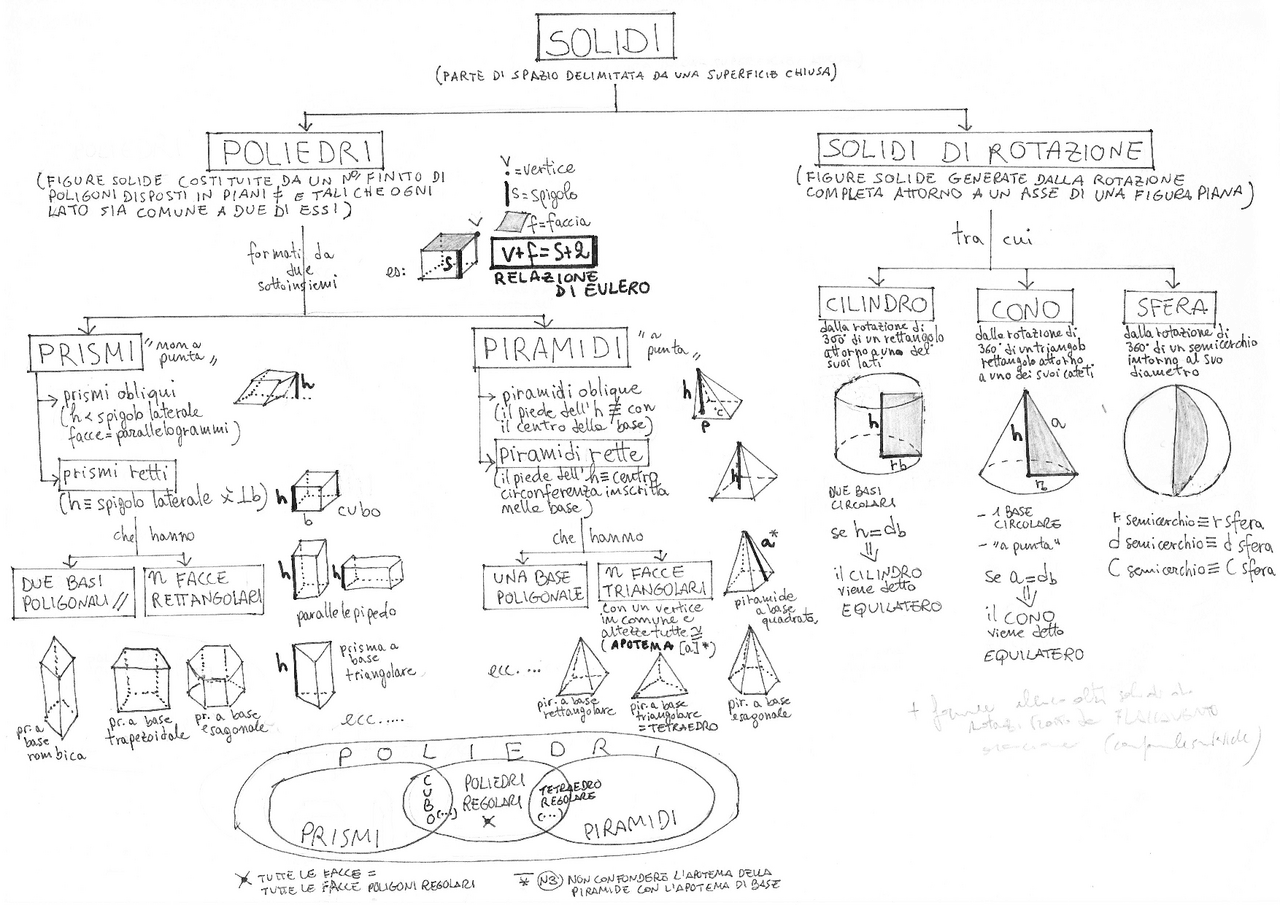 SOLIDI
(PARTE DI SPAZIO DELIMITATA DA UNA SUPERFICIE CHIUSA)
POLIEDRI
(FIGURE SOLIDE COSTITUITE DA UN N° FINITO DI
POLIGONI DISPOSTI IN PIANI ≠ E TALI CHE OGNI
LATO SIA COMUNE A DUE DI ESSI)
formati da
due
sottoinsiemi
V
= vertice
s = spigolo
f = faccia
es:
S
V
V+f=S+2
RELAZIONE
DI EULERO
PRISMI
"non a
punta"
prismi obliqui
(h < spigolo laterale
facce = parallelogrammi)
h
prismi retti
(h ≡ spigolo laterale x ⊥ b)
h
b
cubo
che hanno
DUE BASI
POLIGONALI //
n FACCE
RETTANGOLARI
h
h
parallelepipedo
h
prisma a
base
triangolare
ecc.....
pr. a
base
rombica
pr. a base
trapezoidale
pr. a base
esagonale
PIRAMIDI
"a
punta"
piramidi oblique
(il piede dell'h ≢ con
il centro della base)
h
c
P
piramidi rette
(il piede dell'h ≡ centro
circonferenza inscritta
nella base)
h
che hanno
UNA BASE
POLIGONALE
n FACCE
TRIANGOLARI
con un vertice
in comune e
altezze tutte ≅
(APOTEMA [a]*)
a*
piramide
a base
quadrata
ecc....
pir. a base
rettangolare
pir. a
base
triangolare
= TETRAEDRO
pir. a base
esagonale
SOLIDI DI ROTAZIONE
(FIGURE SOLIDE GENERATE DALLA ROTAZIONE
COMPLETA ATTORNO A UN ASSE DI UNA FIGURA PIANA)
tra cui
CILINDRO
dalla rotazione di
360° di un rettangolo
attorno a uno dei
suoi lati
h
rb
DUE BASI
CIRCOLARI
se h=db
⇓
il CILINDRO
viene detto
EQUILATERO
CONO
dalla rotazione di
360° di un triangolo
rettangolo attorno
a uno dei suoi cateti
h
a
rb
- 1 BASE
CIRCOLARE
- "a punta"
se a=db
⇓
il CONO
viene detto
EQUILATERO
SFERA
dalla rotazione di
360° di un semicerchio
intorno al suo
diametro
r semicerchio ≡ r sfera
d semicerchio ≡ d sfera
C semicerchio ≡ C sfera
POLIEDRI
PRISMI
CUBO (...)
POLIEDRI
REGOLARI
TETRAEDRO
REGOLARE
(...)
PIRAMIDI
TUTTE LE FACCE =
TUTTE LE FACCE POLIGONI REGOLARI
* NB NON CONFONDERE L'APOTEMA DELLA
PIRAMIDE CON L'APOTEMA DI BASE